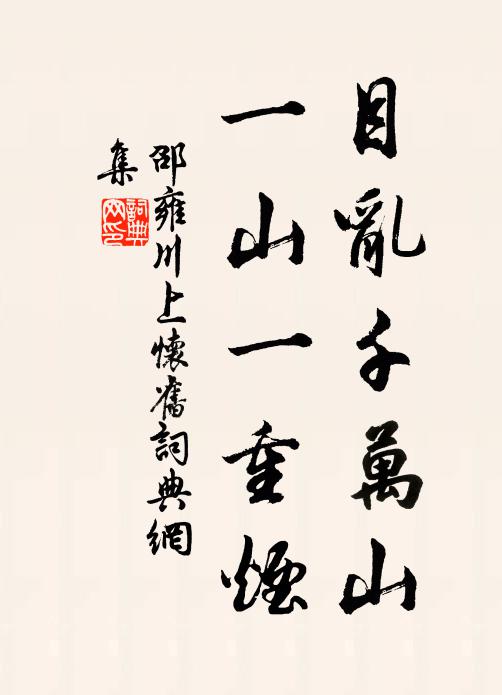 目亂千萬山
一山一重煙
邵雍川上懷舊詞典網
集
詞典
网印